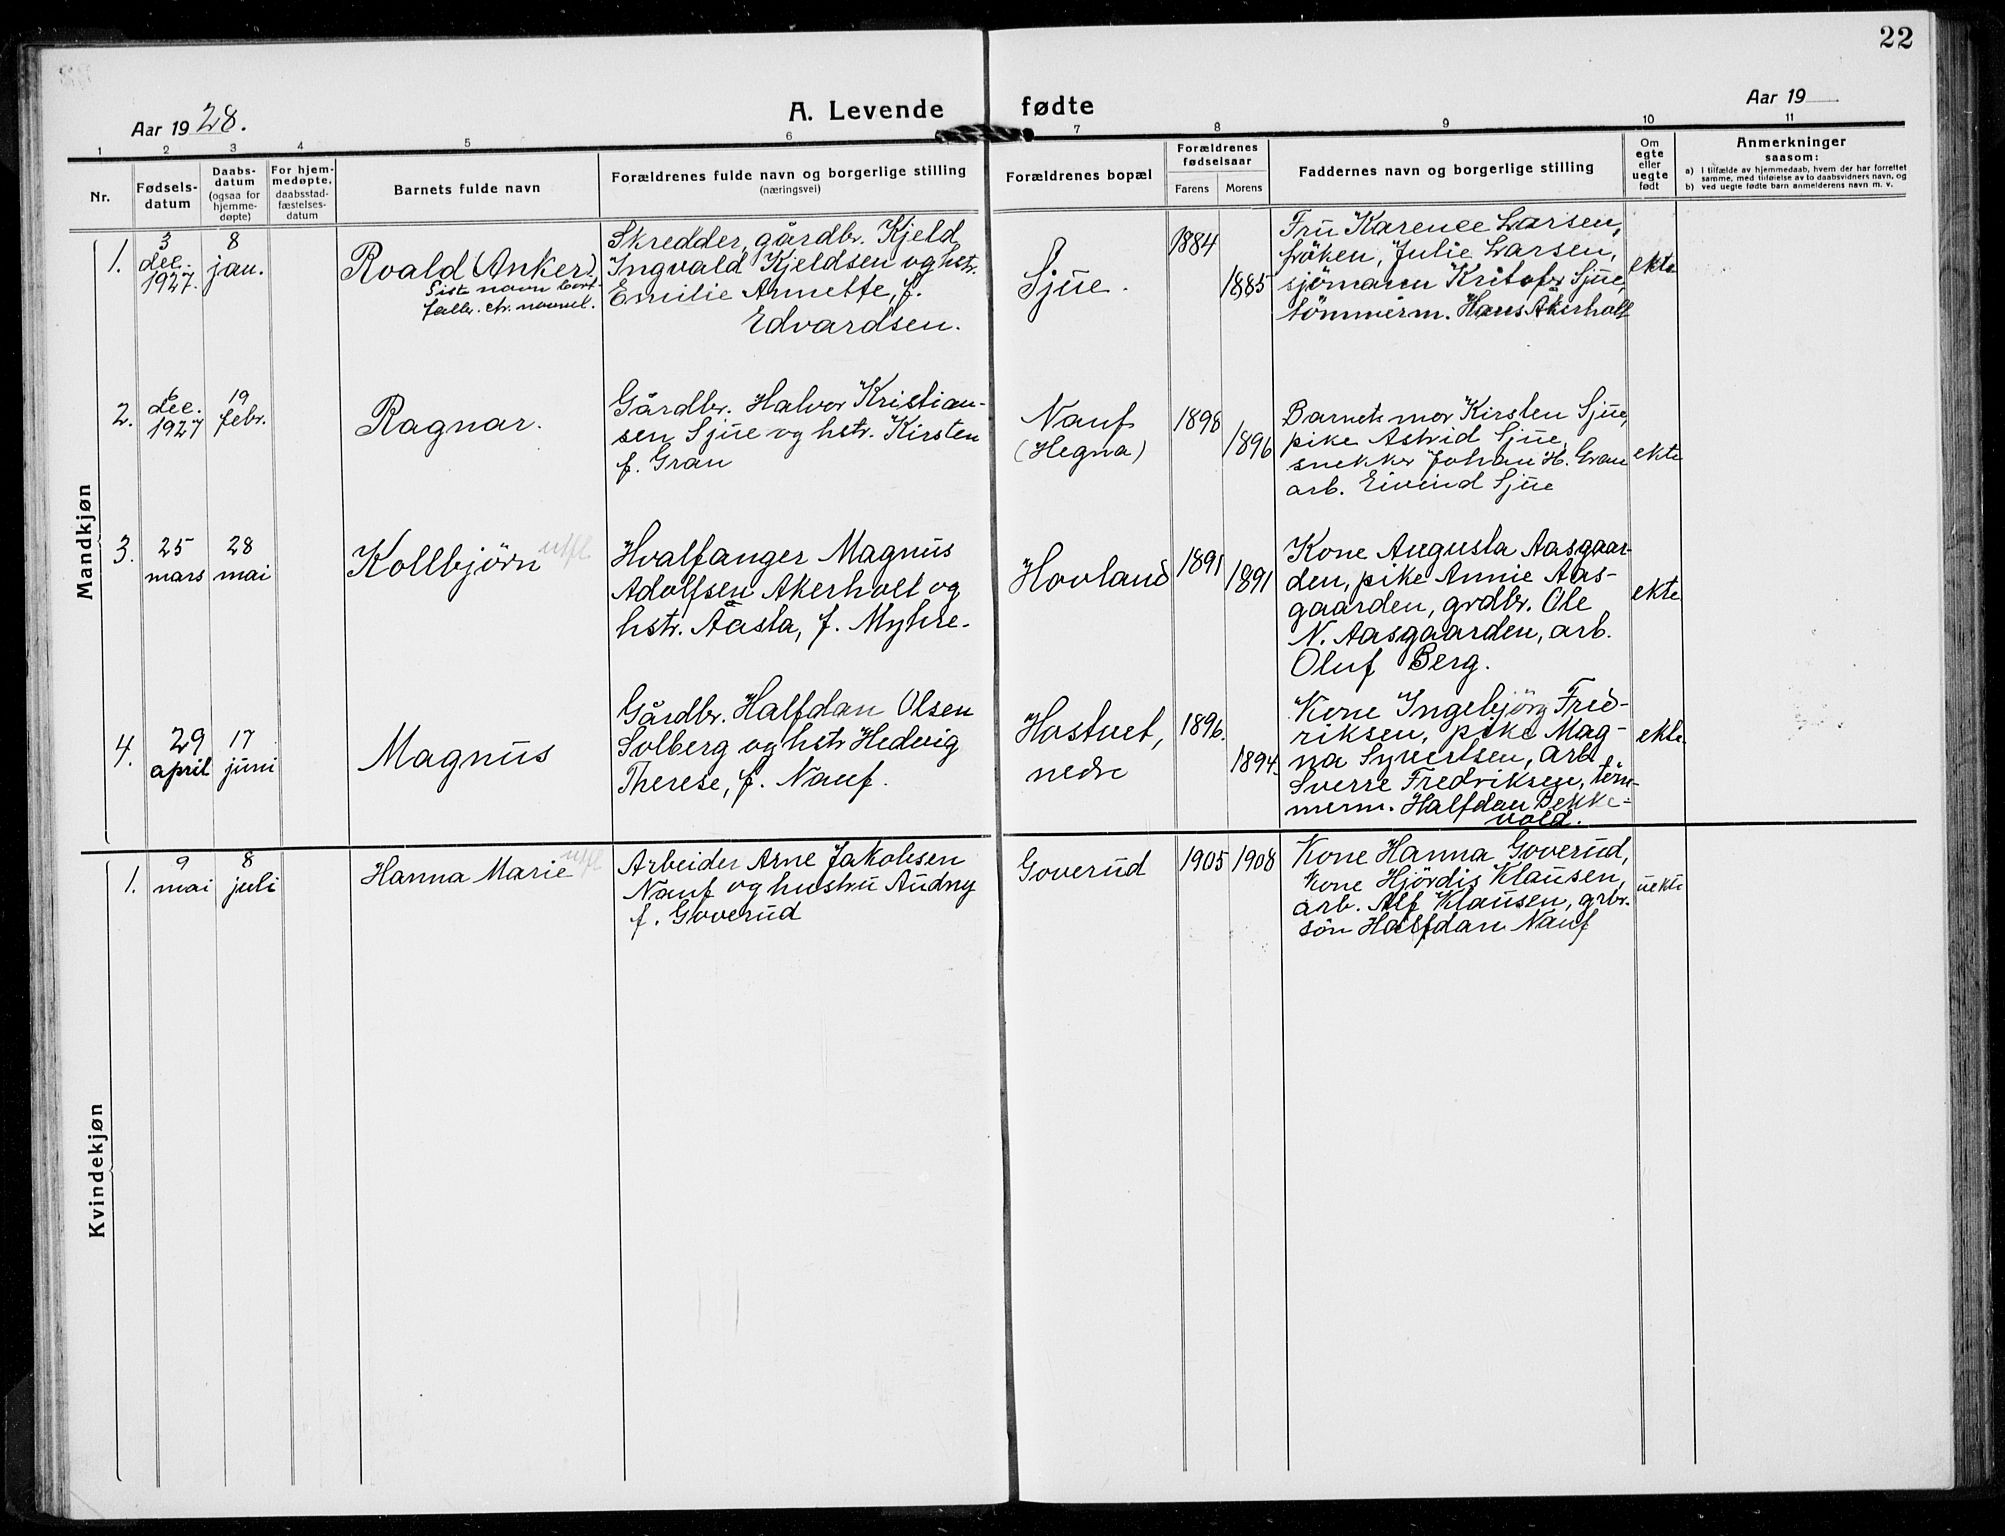 22
Aar 1928.
A. Levende fødte
Aar 19
1 2 3 4 5 6 7 8 9 10 11
Nr.
Fødsels-
datum
Daabs-
datum
(ogsaa for
hjemme-
døpte)
For hjem-
medøpte,
daabsstad-
fæstelses-
datum
Barnets fulde navn
Forældrenes fulde navn og borgerlige stilling
(næringsvei)
Forældrenes bopæl
Forældrenes
fødselsaar
Farens Morens
Faddernes navn og borgerlige stilling
Om
egte
eller
uegte
født
Anmerkninger
saasom:
a) I tilfælde av hjemmedaab, hvem der har forrettet
samme, med tilføielse av to daabsvidners navn, og
b) ved uegte fødte barn anmelderens navn m. v.
Mandkjøn
1.
3
dec.
1927.
8
jan.
Roald (Anker).
Siste navn bort-
faller
Skredder, gårdbr. Kjeld
Ingvald Kjeldsen og hstr.
Emilie Annette, f.
Edvardsen.
Sjue.
1884
1885
Fru Karence Larsen,
Löken, Julie Larsen,
sjömann Kristofer Sjue,
tömmerm. Hans Akerholt
ekte
2.
dec.
1927
19
febr.
Ragnar.
Gårdbr. Halvor Kristian-
sen Sjue og hstr. Kirsten
f. Gran
Nauf
(Hegna)
1898
1896
Barnets mor Kirsten Sjue,
pike Astrid Sjue,
snekker Johan H. Gran
arb. Eivind Sjue
ekte
3.
25
mars
28
mai
Kollbjørn utfl
Hvalfanger Magnus
Adolfsen Akerholt og
hstr. Åasta, f. Myhre.
Hovland
1891
1891
Kone Augusta Aasgaar-
den, pike Annie Aas-
gaarden, grdbr. Ole
N. Aasgaarden, arb.
Oluf Berg.
ekte
4.
29
april
17
juni
Magnus
Gårdbr. Halfdan Olsen
Solberg og hstr Hedvig
Therese, f. Nauf.
Hastvet,
nedre
1896.
1894.
Kone Ingebjörg Fred-
riksen, pike Mag-
na Syvertsen, arb.
Sverre Fredriksen, töm-
merm. Halfdan Bekke-
vold.
ekte
Kvindekjøn
1.
9
mai
8
juli
Hanna Marie utfl
Arbeider Arne Jakobsen
Nauf og hustru Audny
f. Goverud
Goverud
1905 1908
Kone Hanna Goverud,
kone Hjördis Klausen,
arb. Alf Klausen, grbr.
sön Halfdan Nauf
uekte